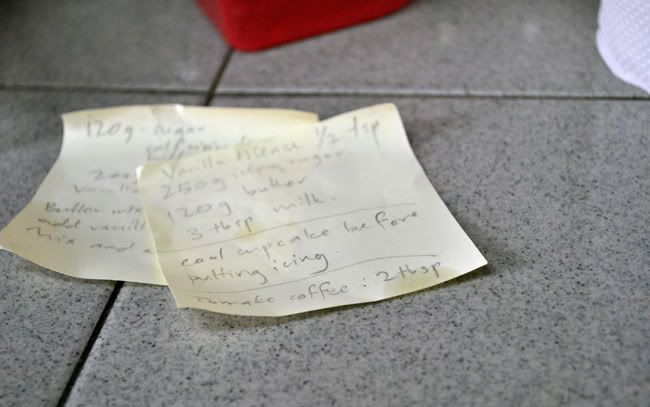 120g sugar
Vanilla
Butter mix
add vanill
Mix and a
Vanilla essence 1/2 tsp
250g icing sugar
120g butter
3 tbsp milk.
cool cupcake before
putting icing.
to make coffee : 2 tbsp